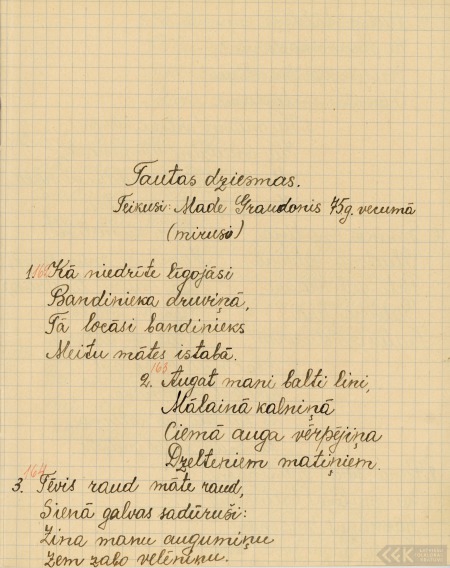 Tautas dziesmas.
Teikusi: Made Graudonis 75g. vecumā
(mirusi)
1. 162 Kā niedrīte līgojāsi
Bandinieka druviņā,
Tā locāsi bandinieks
Meitu mātes istabā.
163
2. Augat mani balti lini,
Mālainā kalniņā
Ciemā auga vērpējiņa
Dzelteniem matiņiem.
164
3. Tēvis raud māte raud,
Sienā galvas sadūruši:
Zina manu augumiņu
Zem zaļo velēniņu.